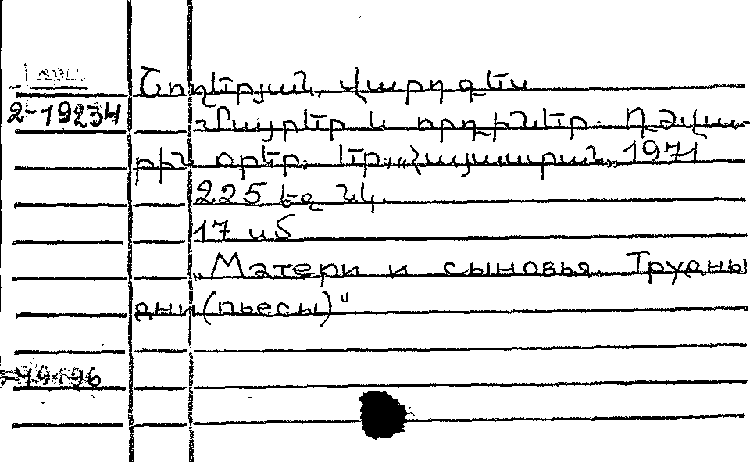 2-19234
Շողերյան վարդգես
Մայրեր և որդիներ. Դժվա-
րին օրեր. Եր. «Հայաստան», 1971
225 էջ նկ.
17 սմ
„Матери и сыновья. Трудны
дни (пьесы)"